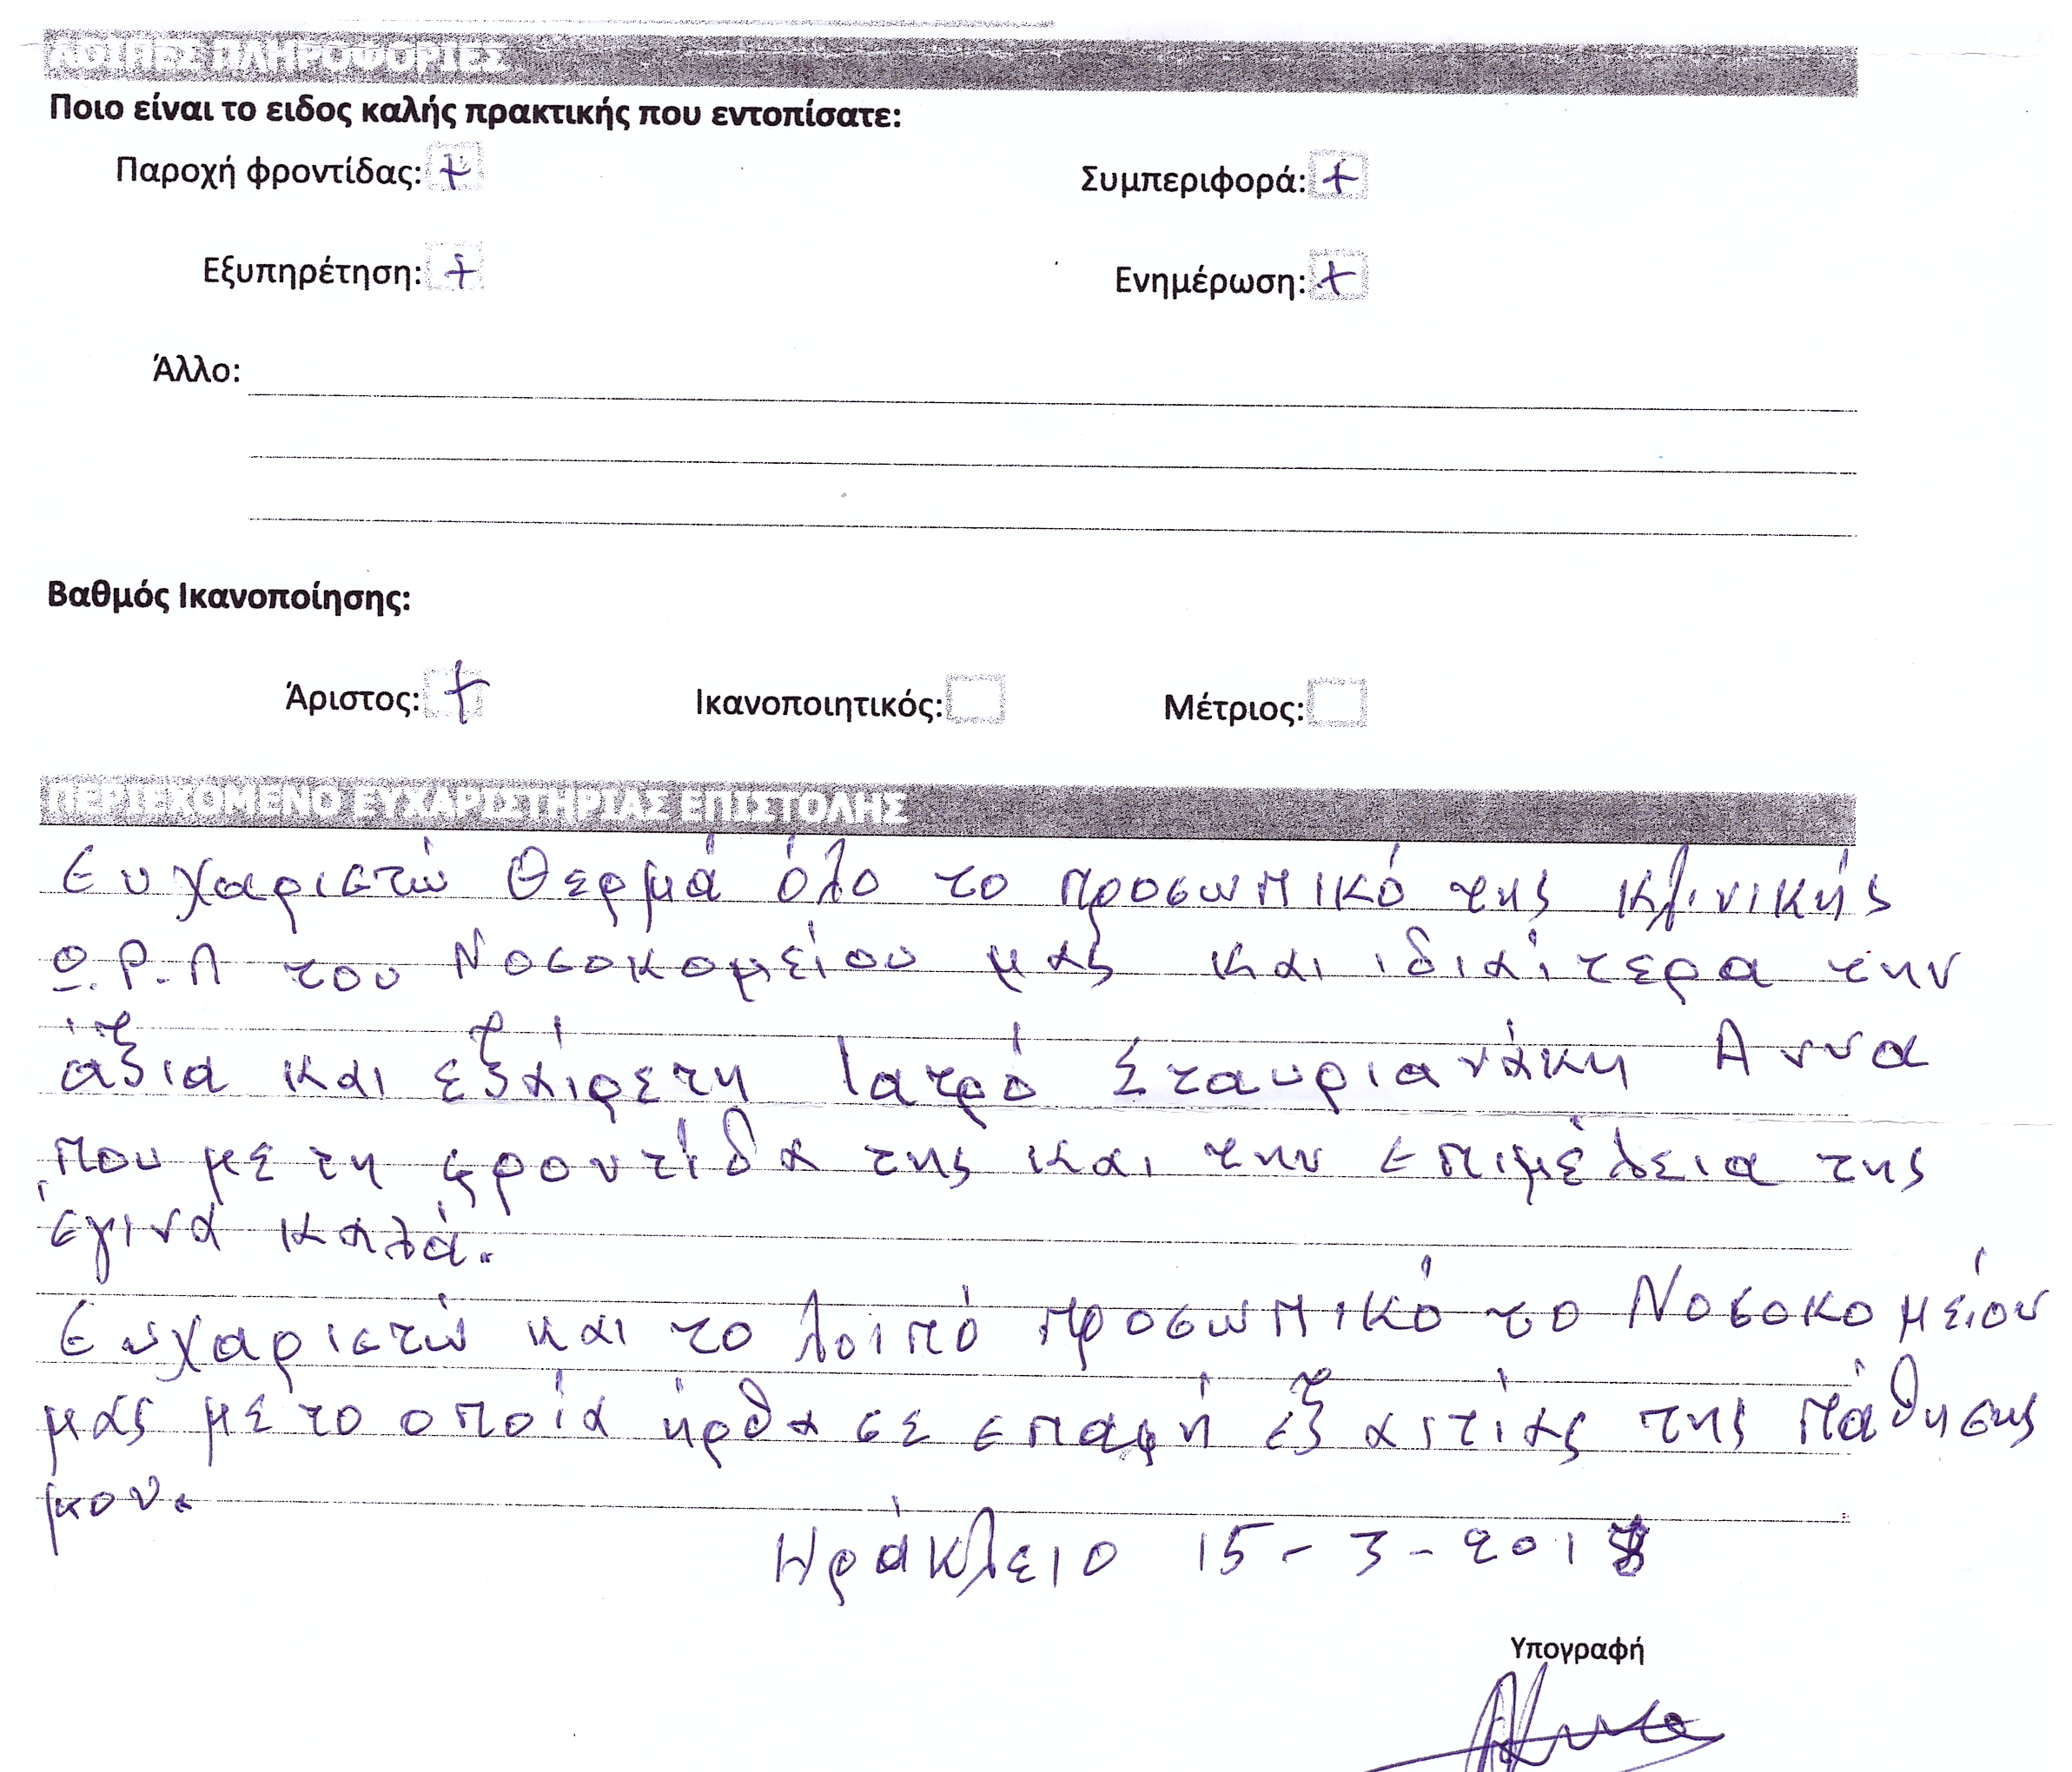 ΛΟΙΠΕΣ ΠΛΗΡΟΦΟΡΙΕΣ
Ποιο είναι το ειδος καλής πρακτικής που εντοπίσατε:
Παροχή φροντίδας: + Συμπεριφορά: +
Εξυπηρέτηση: + Ενημέρωση: +
Άλλο:
Βαθμός Ικανοποίησης:
Άριστος: + Ικανοποιητικός: Μέτριος:
ΠΕΡΙΕΧΟΜΕΝΟ ΕΥΧΑΡΙΣΤΗΡΙΑΣ ΕΠΙΣΤΟΛΗΣ
Ευχαριστώ θερμά όλο το προσωπικό της κλινικής
Ο.Ρ.Λ του Νοσοκομείου μας και ιδιαίτερα την
άξια και εξαίρετη Ιατρό Σταυριανάκη Αννα
που με τη φροντίδα της και την επιμέλεια της
έγινα καλά.
Ευχαριστώ και το λοιπό προσωπικό το Νοσοκομείου
μας με το οποία ήρθα σε επαφή εξ αιτίας της πάθησης
μου.
Ηράκλειο 15-3-201
Υπογραφή